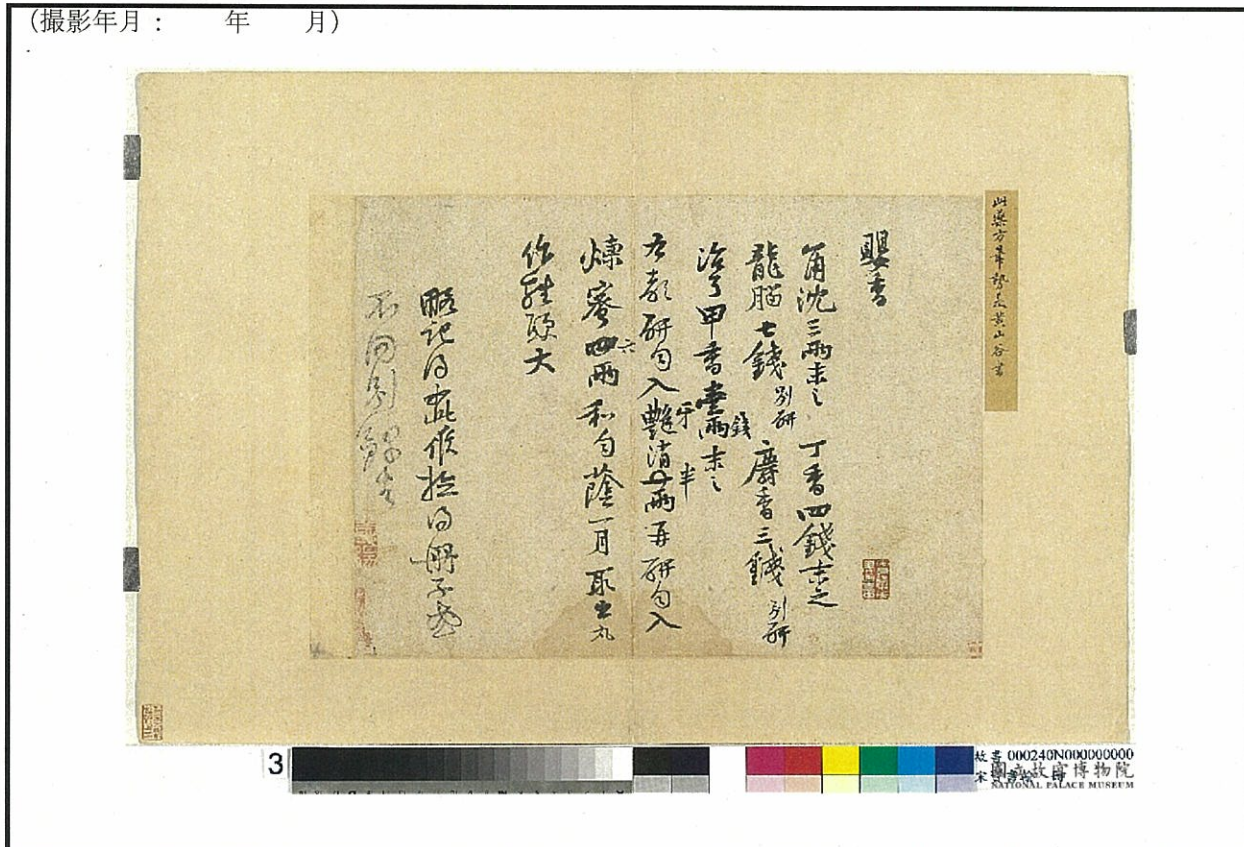 (撮影年月： 年 月)
此藥方筆勢屬黃山谷書
嬰香
角沈三兩末之 丁香四錢末之
龍腦七錢別研 麝香三錢別研
治了甲香壹兩錢末之
右都研勻入牙消半兩再研勻入
煉蜜六兩和勻蔭一月取出丸
作雞頭大
略記得此候檢得冊子或
不同別
3
故書 000240N000000000
國立故宮博物院
NATIONAL PALACE MUSEUM